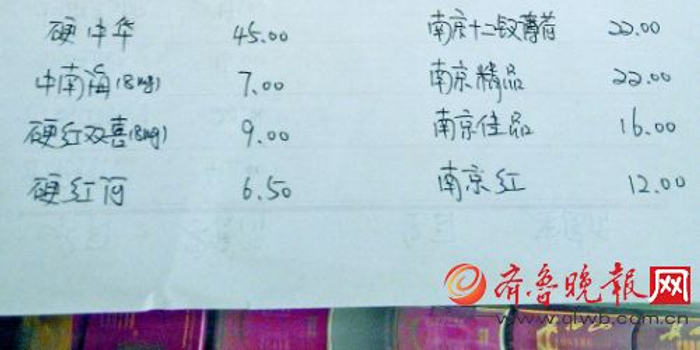 硬中华 45.00 南京十二钗薄荷 22.00
中南海(8mg) 7.00 南京精品 22.00
硬红双喜(8mg) 9.00 南京佳品 16.00
硬红河 6.50 南京红 12.00
齐鲁晚报网
www.qlwb.com.cn